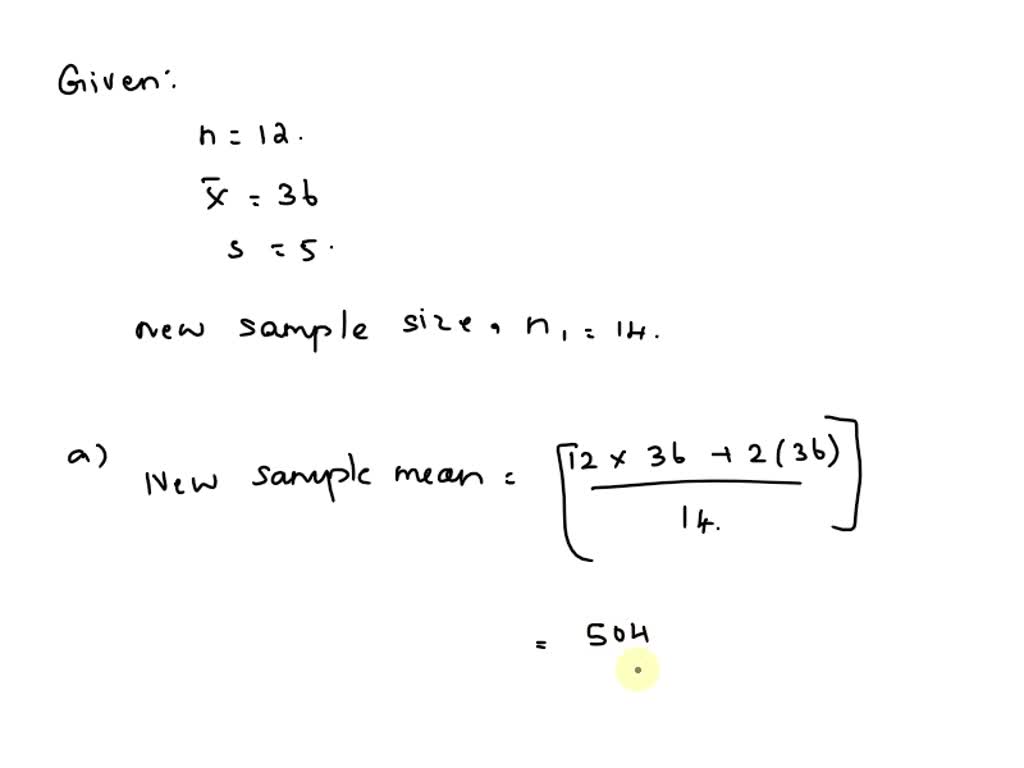 Given:
n = 12.
x̄ = 36
s = 5.
new sample size, n₁ = 14.
a) New sample mean = [12 × 36 + 2(36) / 14.]
= 504